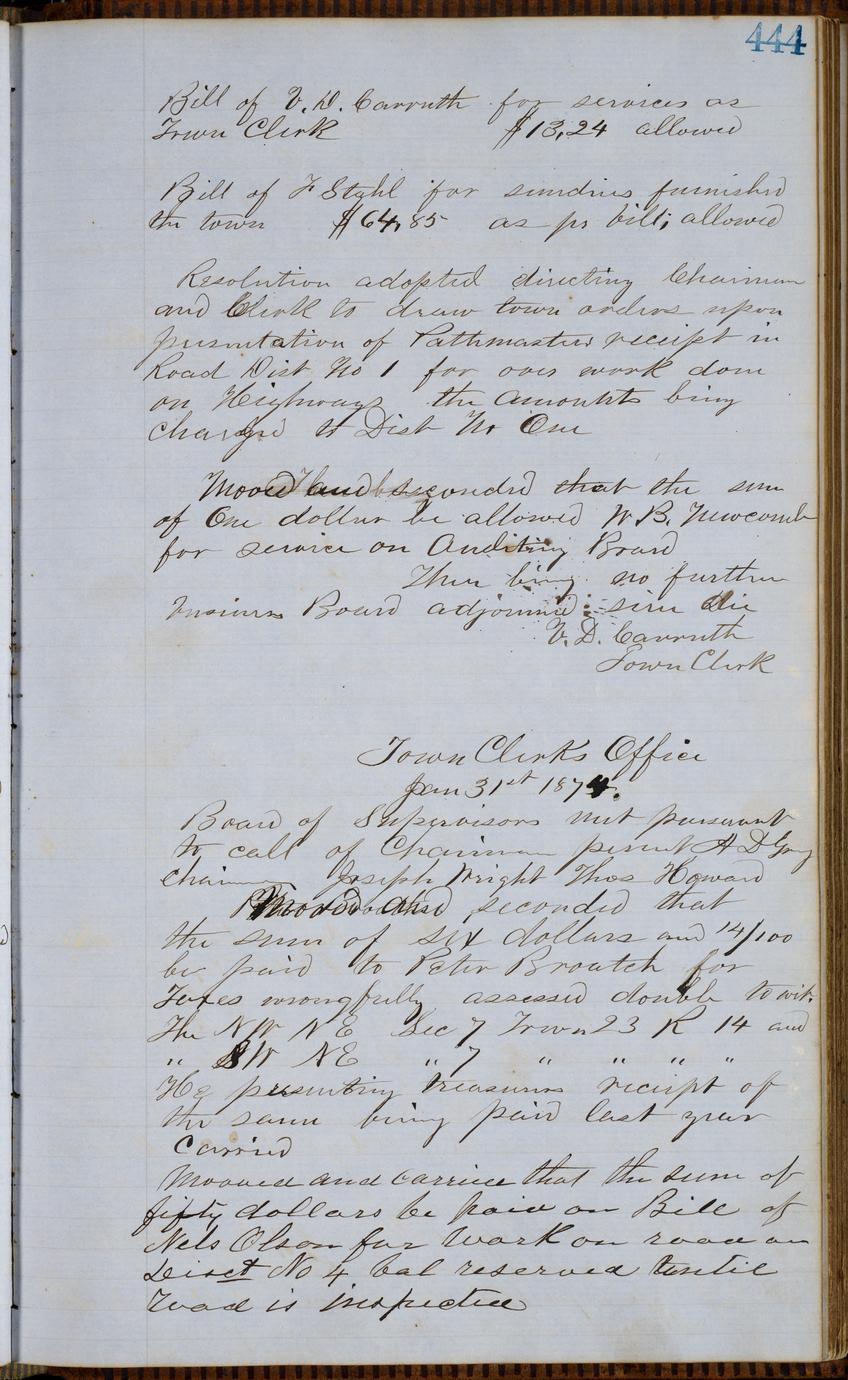 444
Bill of V. D. Carruth for services as
Town Clerk $13,24 allowed
Bill of F Stahl for sundries furnished
the town $64,85 as pr bill; allowed
Resolution adopted directing Chairman
and Clerk to draw town orders upon
presentation of Pathmasters receipt in
Road Dist No 1 for over work done
on Highways the amounts being
charged to Dist No One
Mooved and seconded that the sum
of One dollar be allowed W B. Newcomb
for service on Auditing Board
There being no further
business Board adjourned sine die
V. D. Carruth
Town Clerk
Town Clerks Office
Jan 31st 1874.
Board of Supervisors met pursuant
to call of Chairman present A D Gray
chairman Joseph Wright Thos Howard
Mooved and seconded that
the sum of six dollars and 14/100
be paid to Peter Broatch for
Taxes wrongfully assessed double to wit.
The NW NE Sec 7 Town 23 R 14 and
" SW NE " 7 " " " "
He presenting treasurers receipt of
the same being paid last year
Carried
Mooved and carried that the sum of
fifty dollars be paid on Bill of
Nels Olson for work on road on
Disct No 4 bal reserved untill
road is inspected